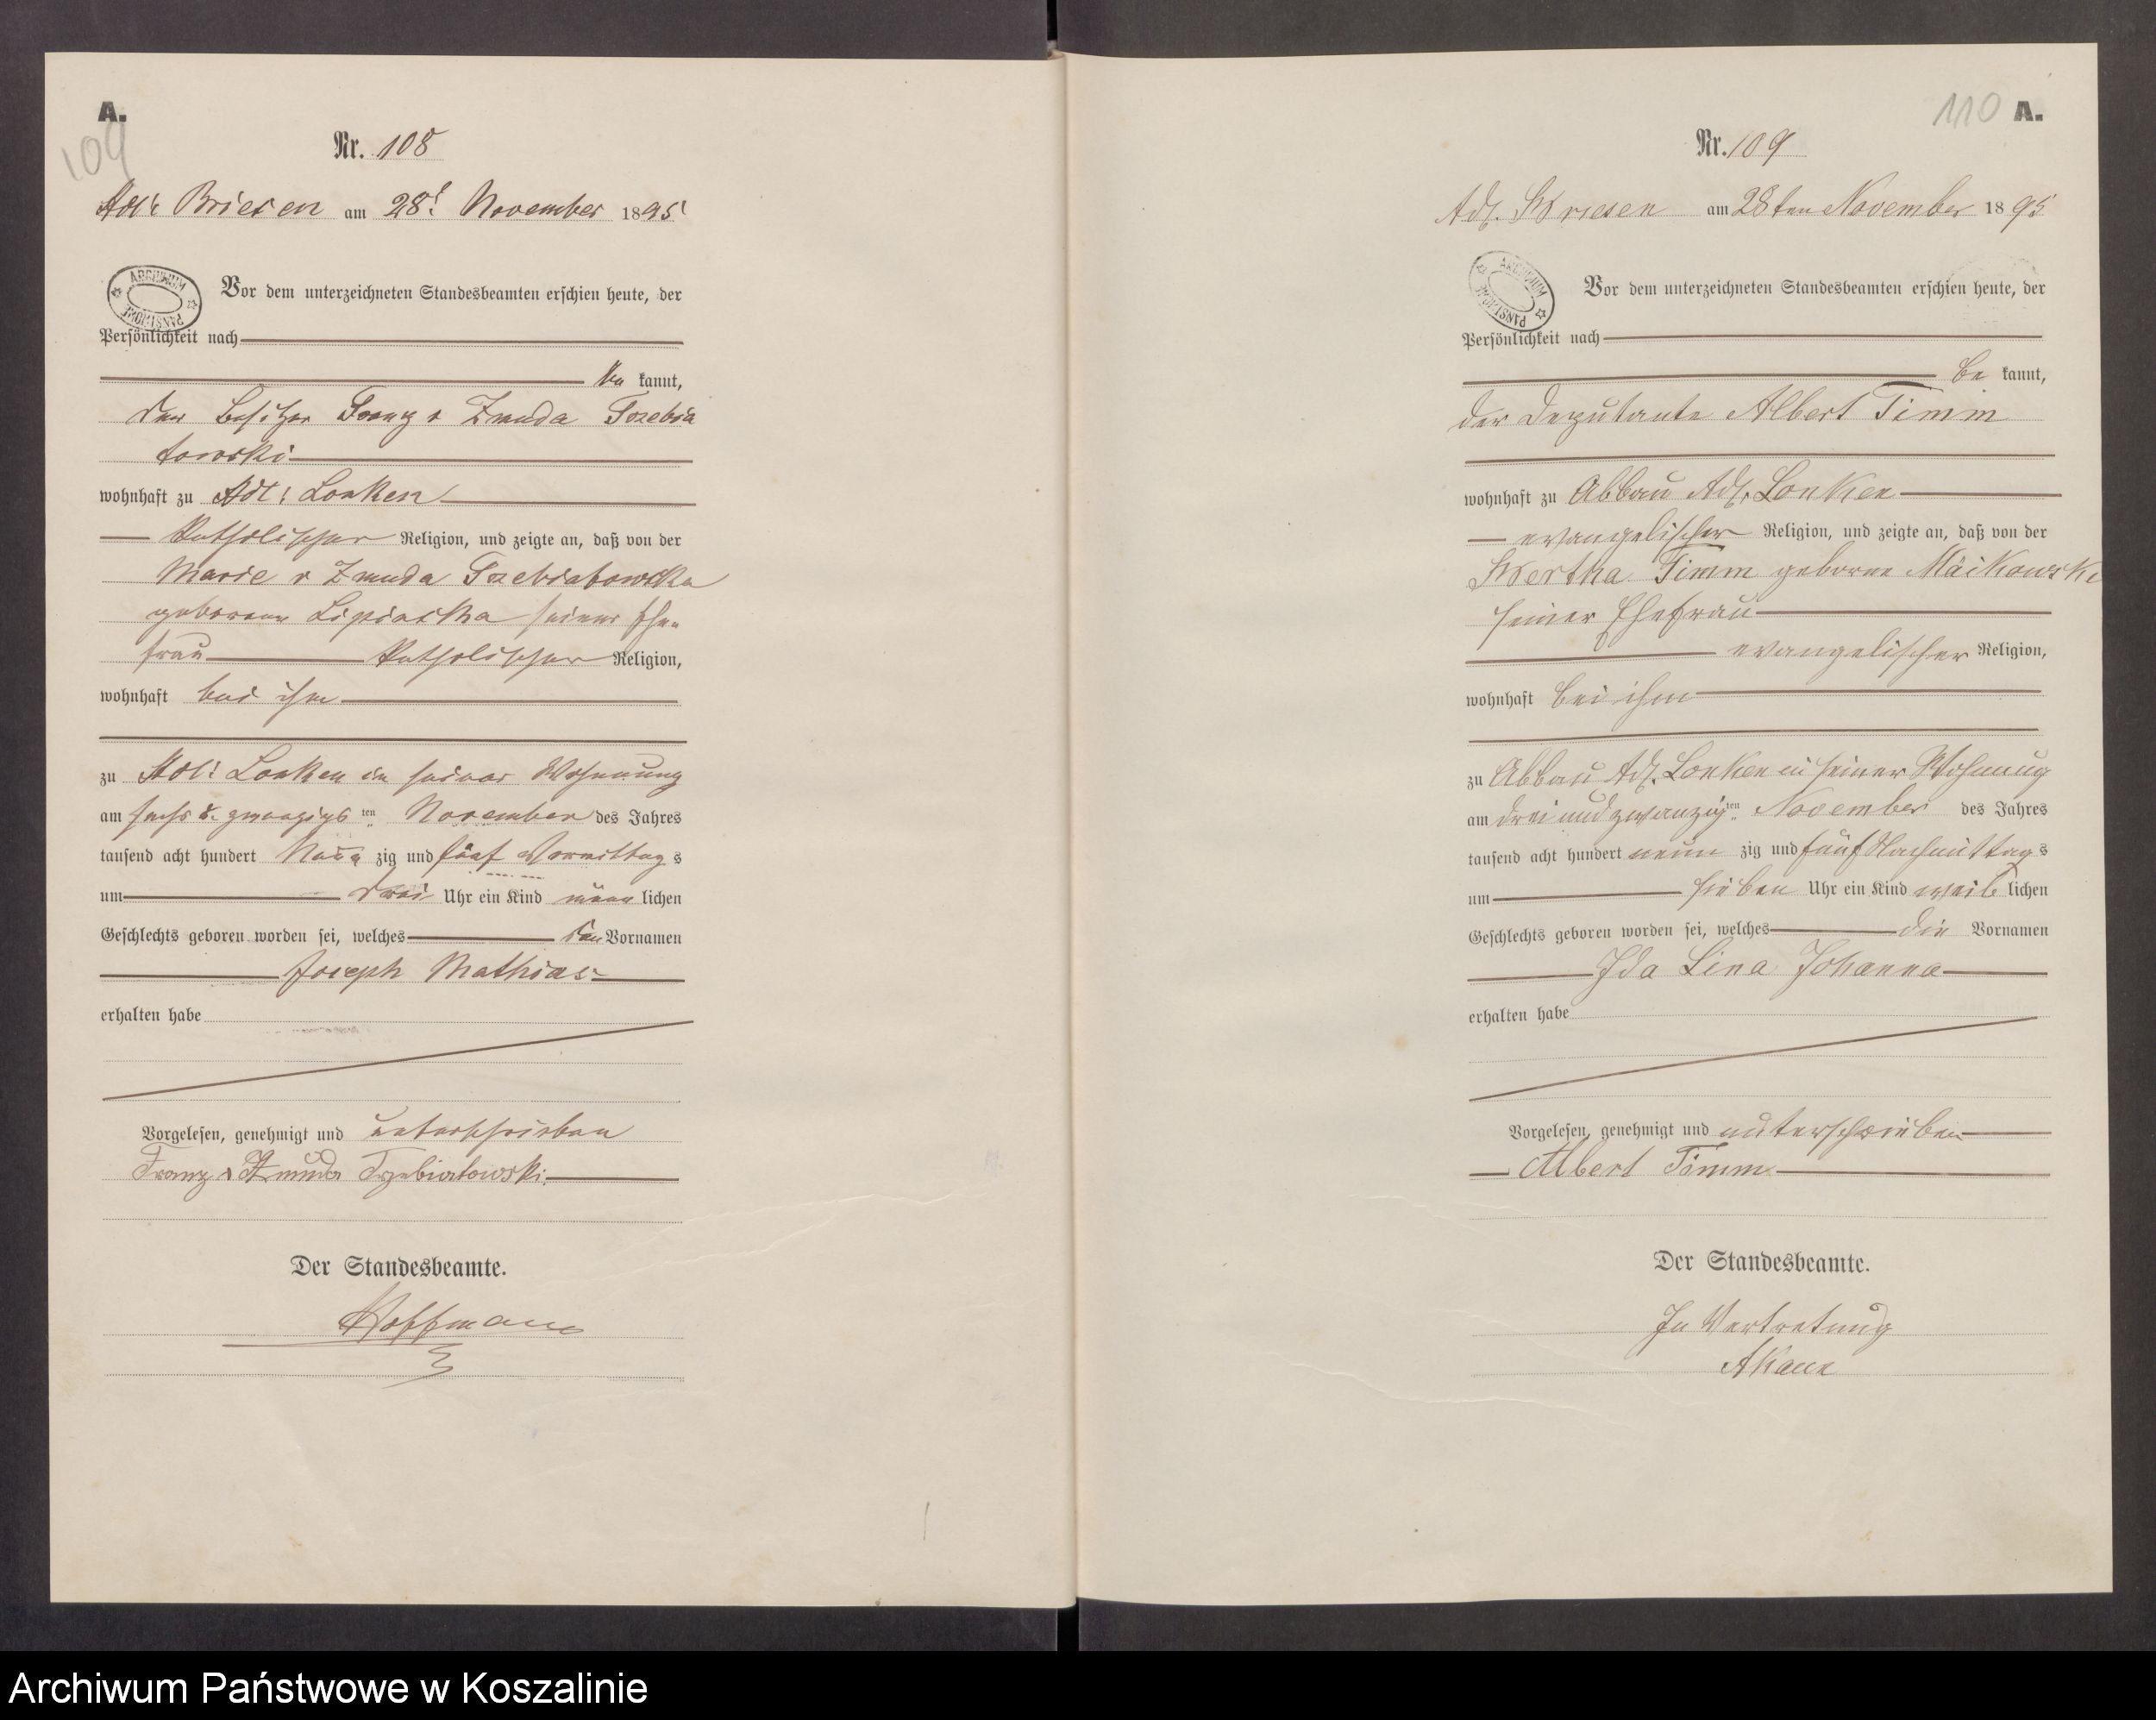 A.
109
Nr. 108
Adl. Briesen am 28t. November 1895
ARCHIWUM PAŃSTWOWE
Vor dem unterzeichneten Standesbeamten erschien heute, der
Persönlichkeit nach
be kannt,
der Besitzer Franz v Zmuda Trzebia
towski
wohnhaft zu Adl: Lonken
katholischer Religion, und zeigte an, daß von der
Marie v Zmuda Trzebiatowska
geborenen Lipinska seiner Ehe-
frau katholischer Religion,
wohnhaft bei ihm
zu Adl: Lonken in seiner Wohnung
am sechs u. zwanzigs ten November des Jahres
tausend acht hundert Neun zig und fünf Vormittag s
um drei Uhr ein Kind männ lichen
Geschlechts geboren worden sei, welches den Vornamen
Joseph Mathias
erhalten habe
Vorgelesen, genehmigt und unterschrieben
Franz v Zmuda Trzebiatowski
Der Standesbeamte.
Hoffmann
110 A.
Nr. 109
Adl. Briesen am 28ten November 1895
ARCHIWUM PAŃSTWOWE
Vor dem unterzeichneten Standesbeamten erschien heute, der
Persönlichkeit nach
be kannt,
der Deputante Albert Timm
wohnhaft zu Abbau Adl. Lonken
evangelischer Religion, und zeigte an, daß von der
Bertha Timm geborne Maikowski
seiner Ehefrau
evangelischer Religion,
wohnhaft bei ihm
zu Abbau Adl. Lonken in seiner Wohnung
am drei und zwanzig ten November des Jahres
tausend acht hundert neun zig und fünf Nachmittag s
um sieben Uhr ein Kind weib lichen
Geschlechts geboren worden sei, welches die Vornamen
Ida Lina Johanna
erhalten habe
Vorgelesen, genehmigt und unterschrieben
Albert Timm
Der Standesbeamte.
In Vertretung
Archiwum Państwowe w Koszalinie